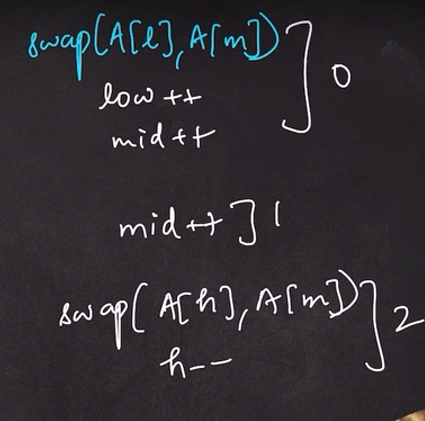 swap(A[l], A[m]) ] 0
low ++
mid ++
mid ++ ] 1
swap( A[h], A[m]) ] 2
h--